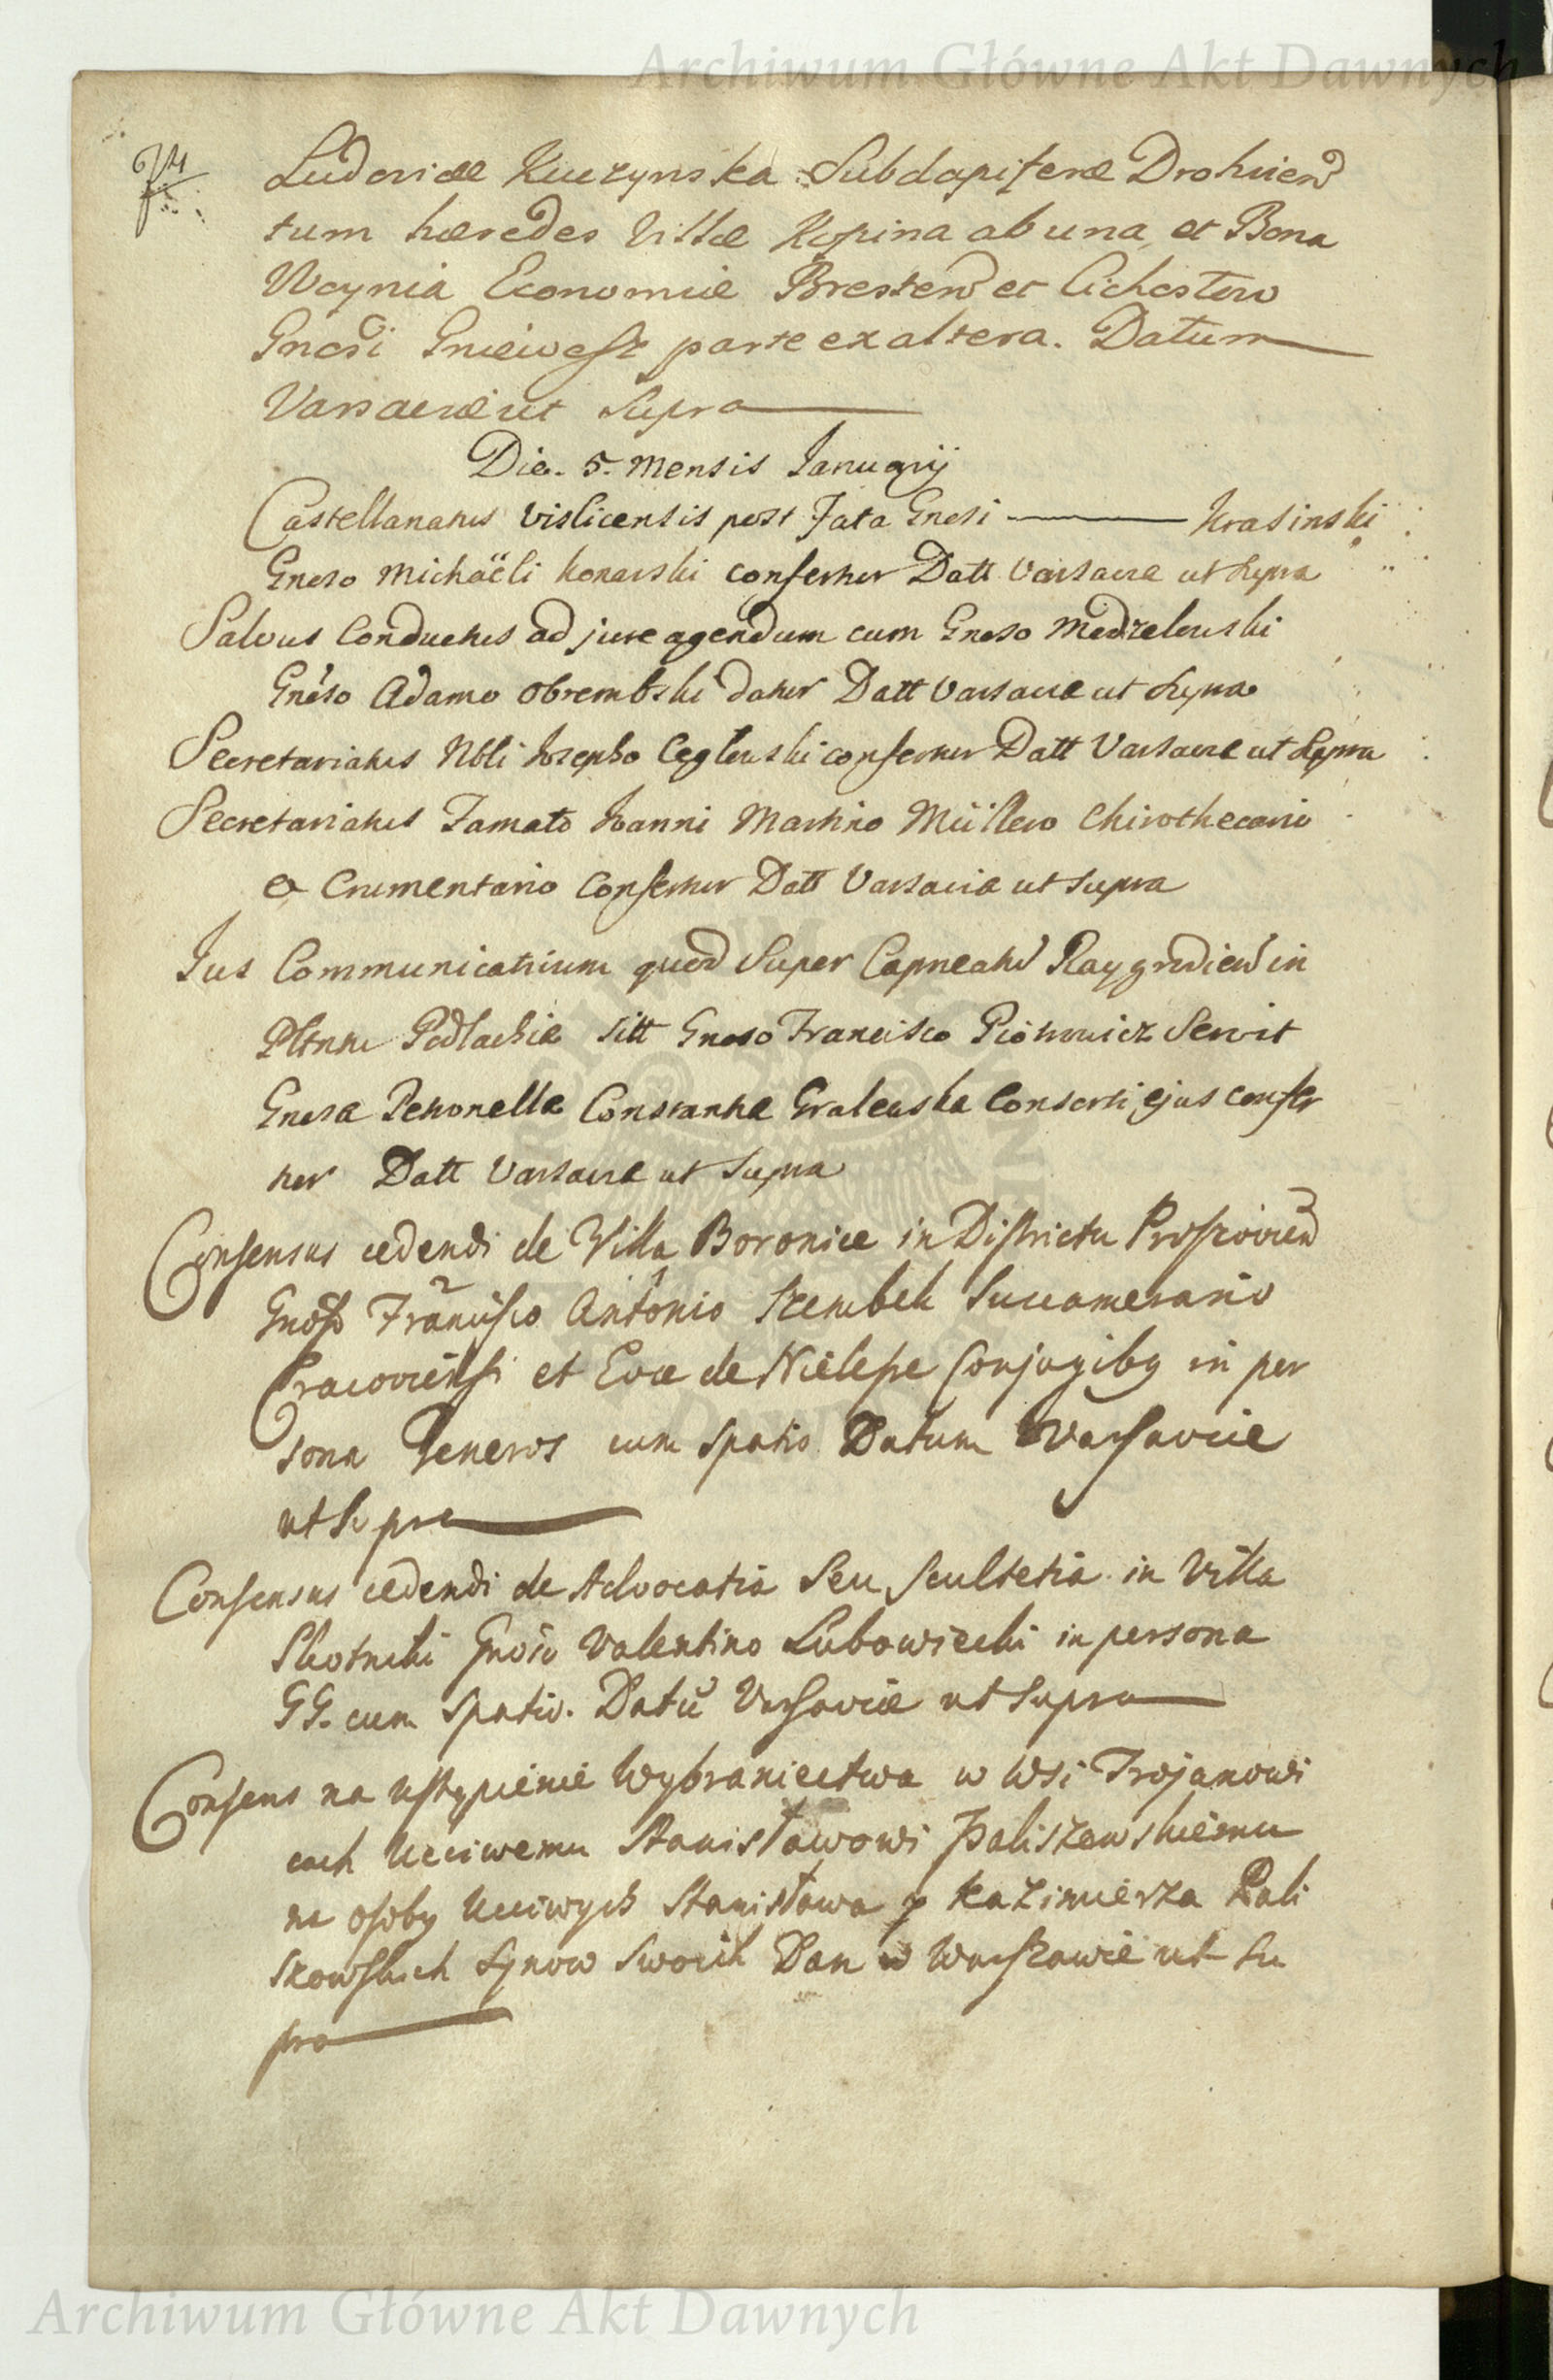 Archiwum Główne Akt Dawnych
74
Ludovicæ Kuczynska Subdapiferæ Drohicen
tum hæredes Villæ Kopina ab una, et Bona
Woynia Economiæ Bresten et Cichostow
Gnosi Gniewosz parte ex altera. Datum
Varsaviæ ut Supra
Die. 5. Mensis Januarij
Castellanatus Vislicensis post Fata Gnosi Krasinski
Gnoso Michaëli Konarski confertur Datt Varsaviæ ut Supra
Salvus Conductus ad jure agendum cum Gnoso
Gnoso Adamo Obrembski datur Datt Varsaviæ ut Supra
Secretariatus Nbli Josepho Ceglewski confertur Datt Varsaviæ ut Supra
Secretariatus Famato Joanni Martino Müllero Chirothecario
et Crumentario Confertur Datt Varsaviæ ut Supra
Jus Communicativum quod Super Capneatu Raygrodien in
Pltnu Podlachiæ sitt Gnoso Francisco Piotrowicz Servit
Gnosa Petronellæ Constantiæ Gralewska Consorti ejus confer
tur Datt Varsaviæ ut Supra
Consensus cedendi de Villa Boronice in Districtu Proszovien
Gnoso Francisco Antonio Szembek Succamerario
Cracoviensi et Evæ de Nielepe Conjugibus in per
sona Generos cum Spatio Datum Varsaviæ
ut Supra
Consensus cedendi de Advocatia Seu Scultetia in Villa
Slotniki Gnoso Valentino Lubowiecki in persona
GG. cum Spatio. Datū Varsaviæ ut Supra
Consens na ustąpienie Wybraniectwa w Wsi Trojanowi
cach Ucciwemu Stanisławowi Paliszewskiemu
na osoby Ucciwych Stanisława y Kazimierza Pali
szowskich Synow Swoich Dan w Warszawie ut Su
pra
Archiwum Główne Akt Dawnych